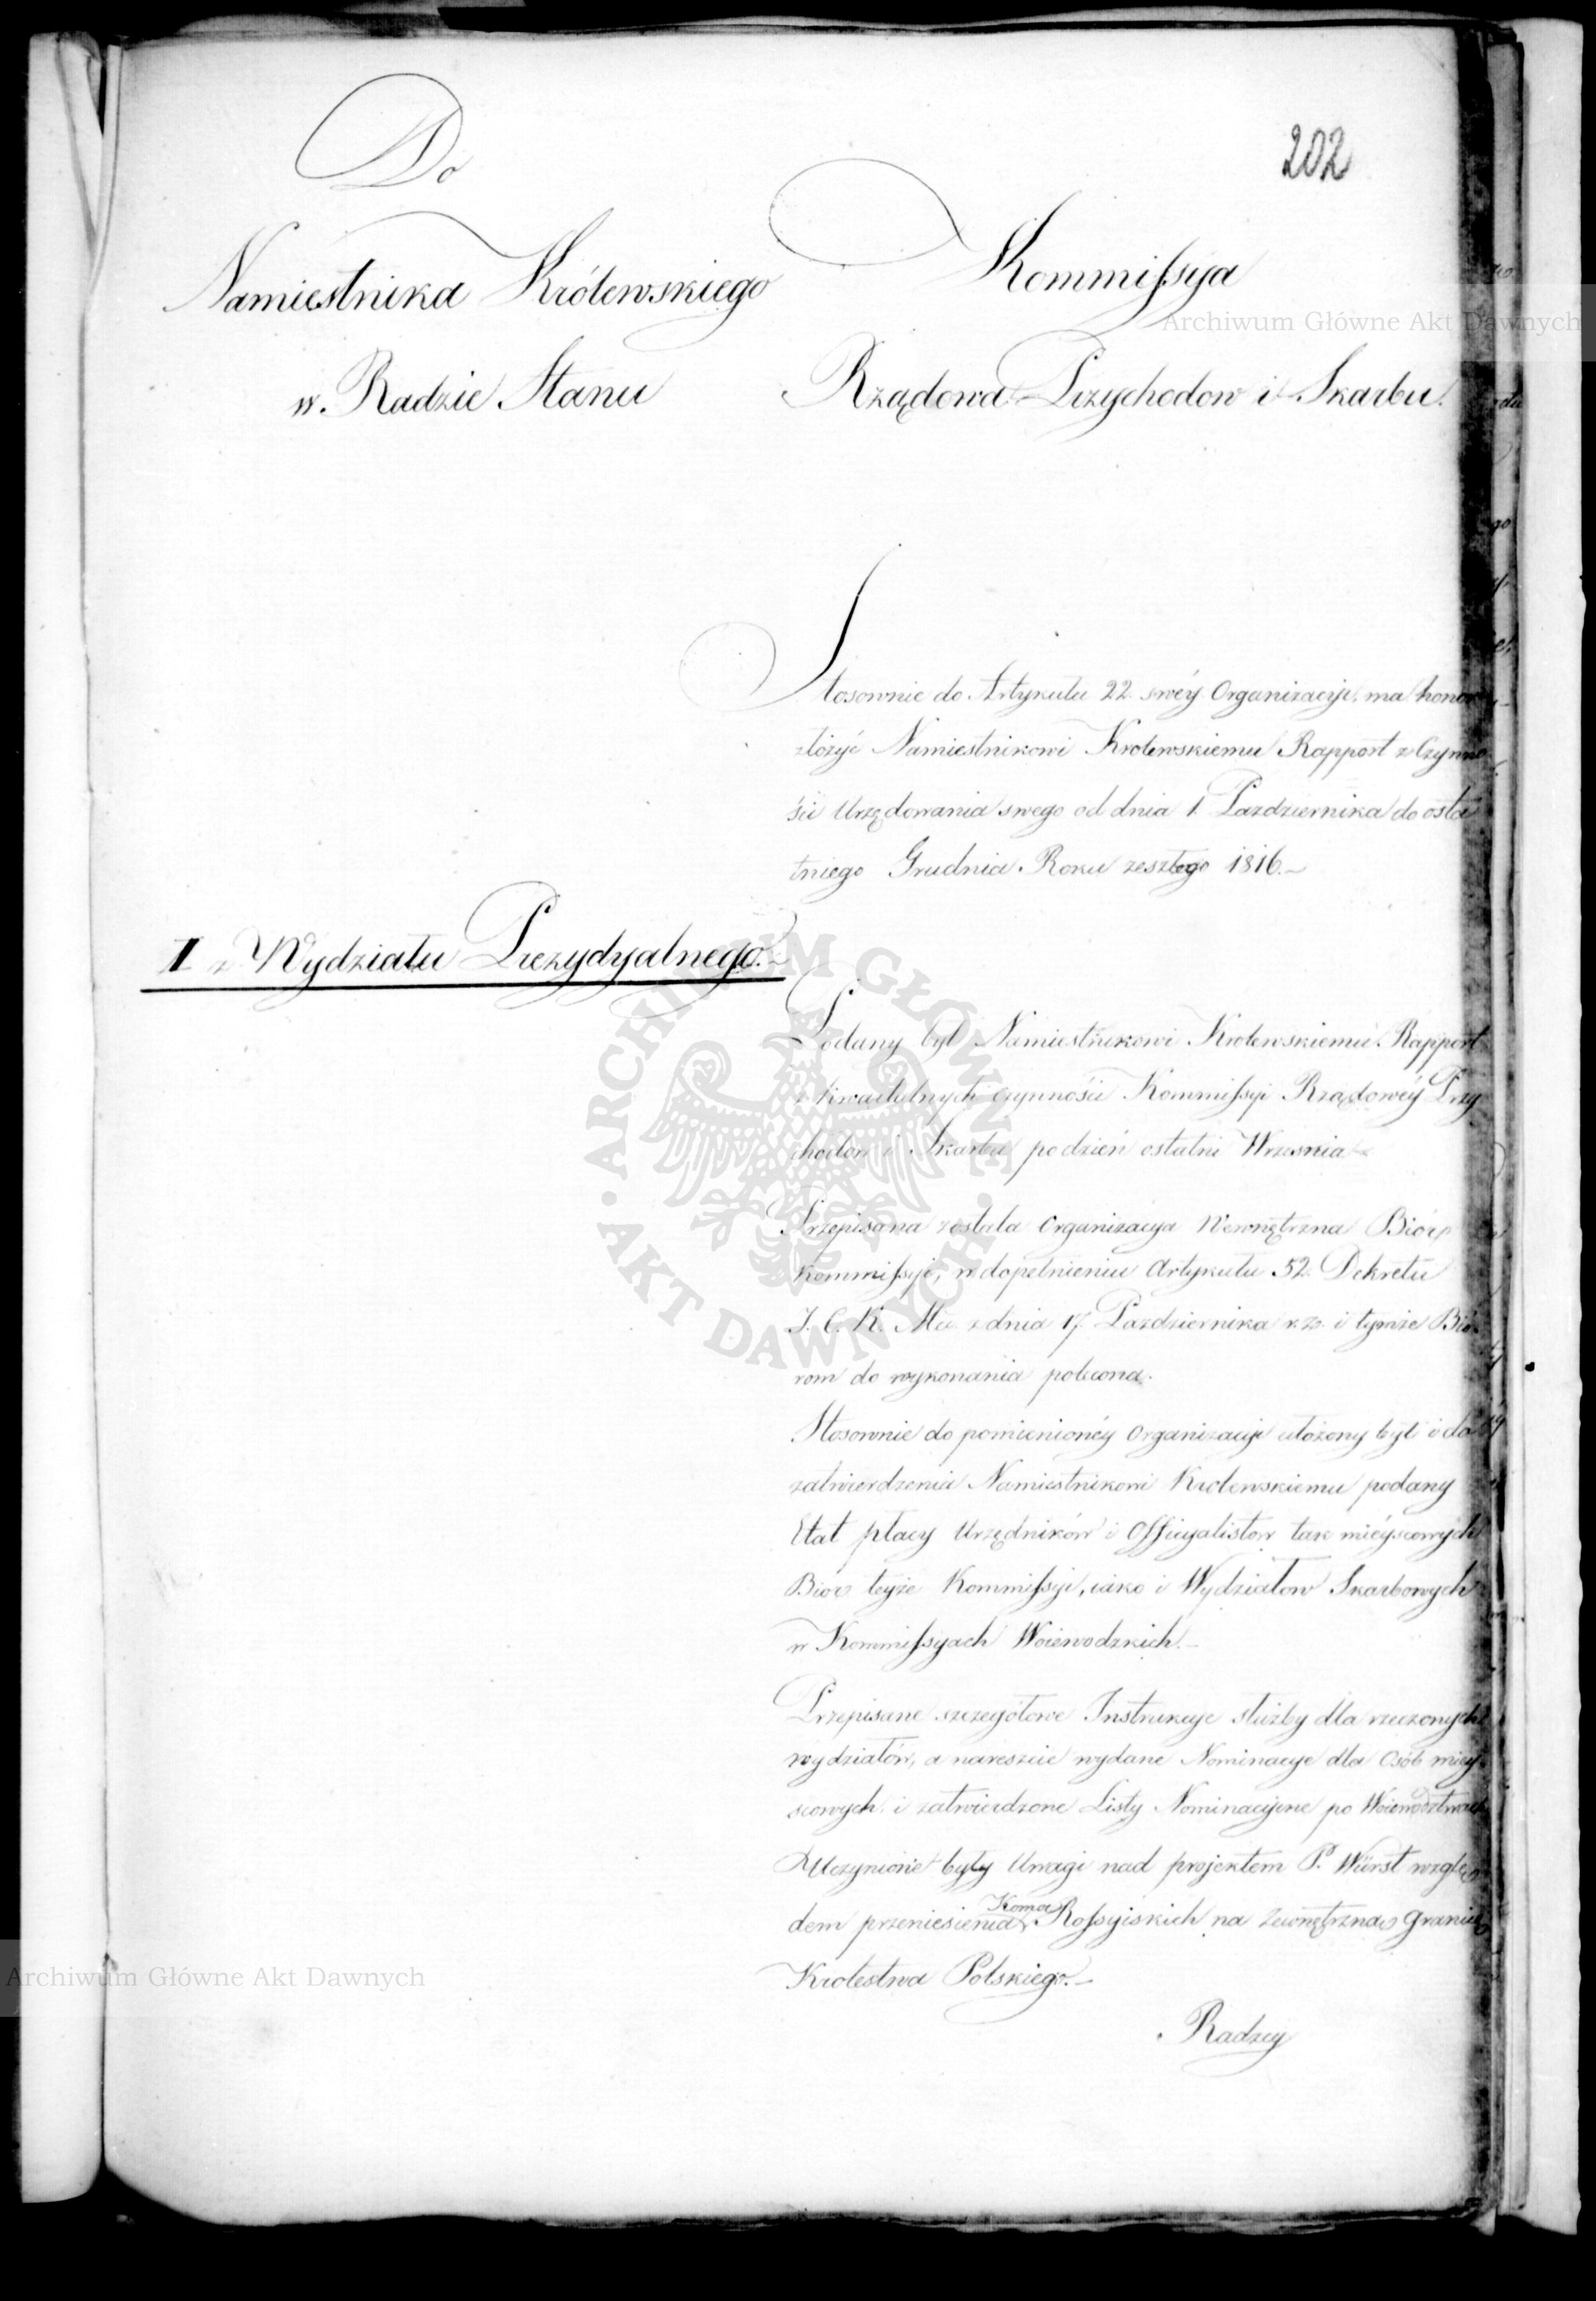 202
Do
Namiestnika Królewskiego
w Radzie Stanu
Kommissyja
Rządowa Przychodow i Skarbu.
Stosownie do Artykułu 22. swéy Organizacyi, ma honor
złożyć Namiestnikowi Krolewskiemu Rapport z Czynno
ści Urzędowania swego od dnia 1. Pazdziernika do osta
tniego Grudnia Roku zeszłego 1816.
I z Wydziału Prezydyalnego.
Podany był Namiestnikowi Krolewskiemu Rapport
z kwartalnych czynności Kommissyi Rządowéy Przy
chodow i Skarbu po dzień ostatni Wrzesnia
Przepisana została Organizacya Wewnętrzna Biór
Kommissyi, w dopełnieniu Artykułu 52. Dekretu
J. C. K. Mci z dnia 17. Pazdziernika r. z. i tymże Bió
rom do wykonania polecona.
Stosownie do pomienionéy Organizacyi ułożony był i do
zatwierdzenia Namiestnikowi Krolewskiemu podany
Etat płacy Urzędników i Officyalistow tak mieyscowych
Bior teyże Kommissyi, iako i Wydziałow Skarbowych
w Kommissyach Woiewodzkich.
Przepisane szczegółowe Instrukcye służby dla rzeczonych
wydziałów, a nareszcie wydane Nominacye dla Osób miey
scowych i zatwierdzone Listy Nominacyjne po Woiewodztwach
Uczynione były Uwagi nad projektem P. Würst wzglę
dem przeniesienia Komor Rossyiskich na Zewnętrzna Granicę
Krolestwa Polskiego.
Radzcy
Archiwum Główne Akt Dawnych
Archiwum Główne Akt Dawnych
ARCHIWUM GŁÓWNE AKT DAWNYCH